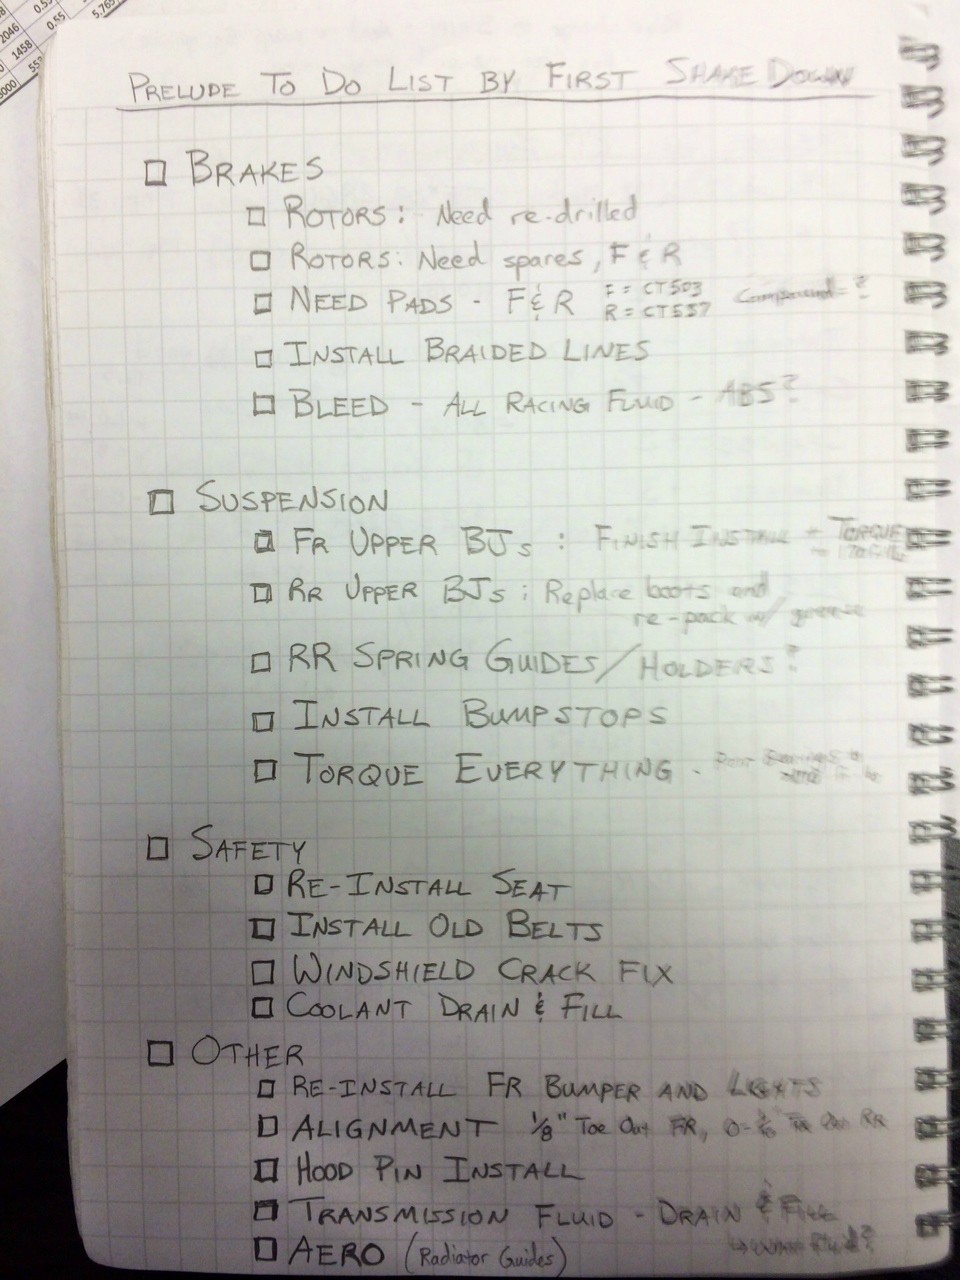 0.55
2046
0.55
5.765
1458
PRELUDE TO DO LIST BY FIRST SHAKE DOWN
BRAKES
ROTORS: Need re-drilled
ROTORS: Need spares, F & R
NEED PADS - F & R F = CT503 Compound = ?
R = CT537
INSTALL BRAIDED LINES
BLEED - ALL RACING FLUID - ABS?
SUSPENSION
FR UPPER BJs : FINISH INSTALL - TORQUE
RR UPPER BJs : Replace boots and
re-pack w/ grease
RR SPRING GUIDES/HOLDERS?
INSTALL BUMPSTOPS
TORQUE EVERYTHING -
SAFETY
RE-INSTALL SEAT
INSTALL OLD BELTS
WINDSHIELD CRACK FIX
COOLANT DRAIN & FILL
OTHER
RE-INSTALL FR BUMPER AND LIGHTS
ALIGNMENT 1/8" Toe Out FR, Toe Out RR
HOOD PIN INSTALL
TRANSMISSION FLUID - DRAIN & FILL
AERO (Radiator Guides) Fluid?